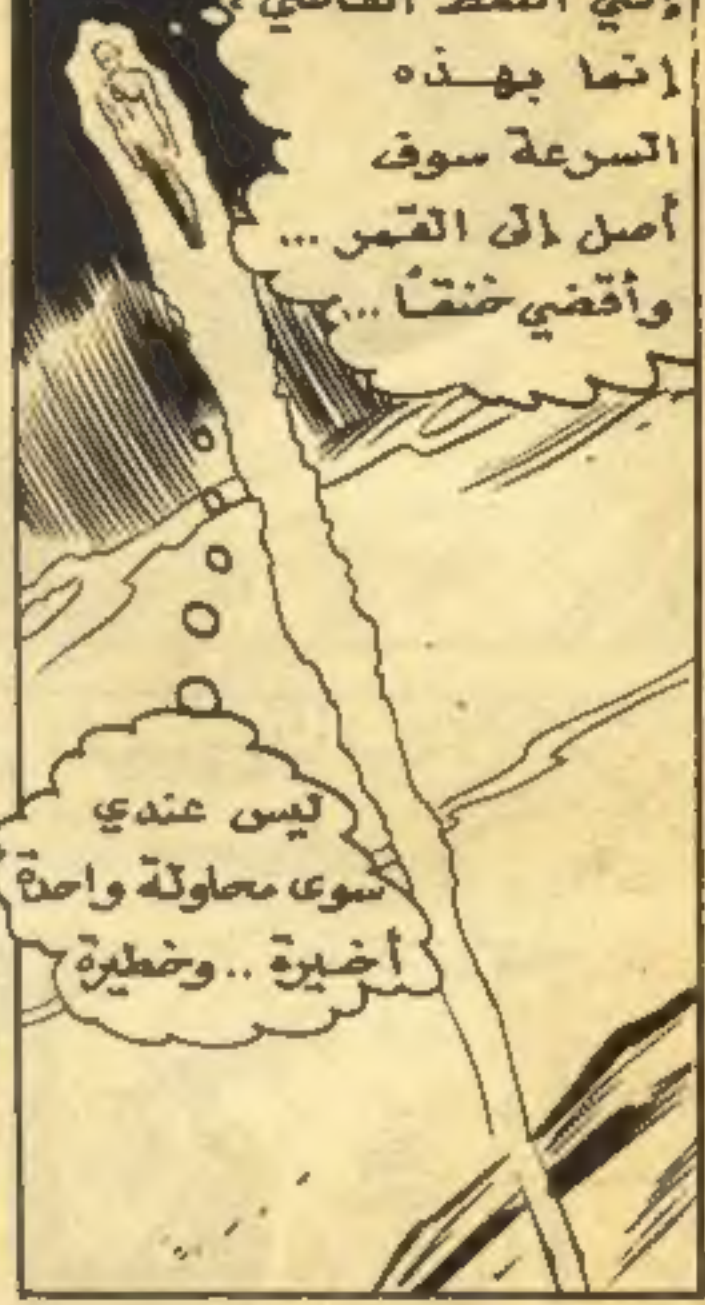 إنما بهذه
السرعة سوف
أصل إلى القمر ...
وأقضي خنقاً ...
ليس عندي
سوى محاولة واحدة
أخيرة .. وخطيرة